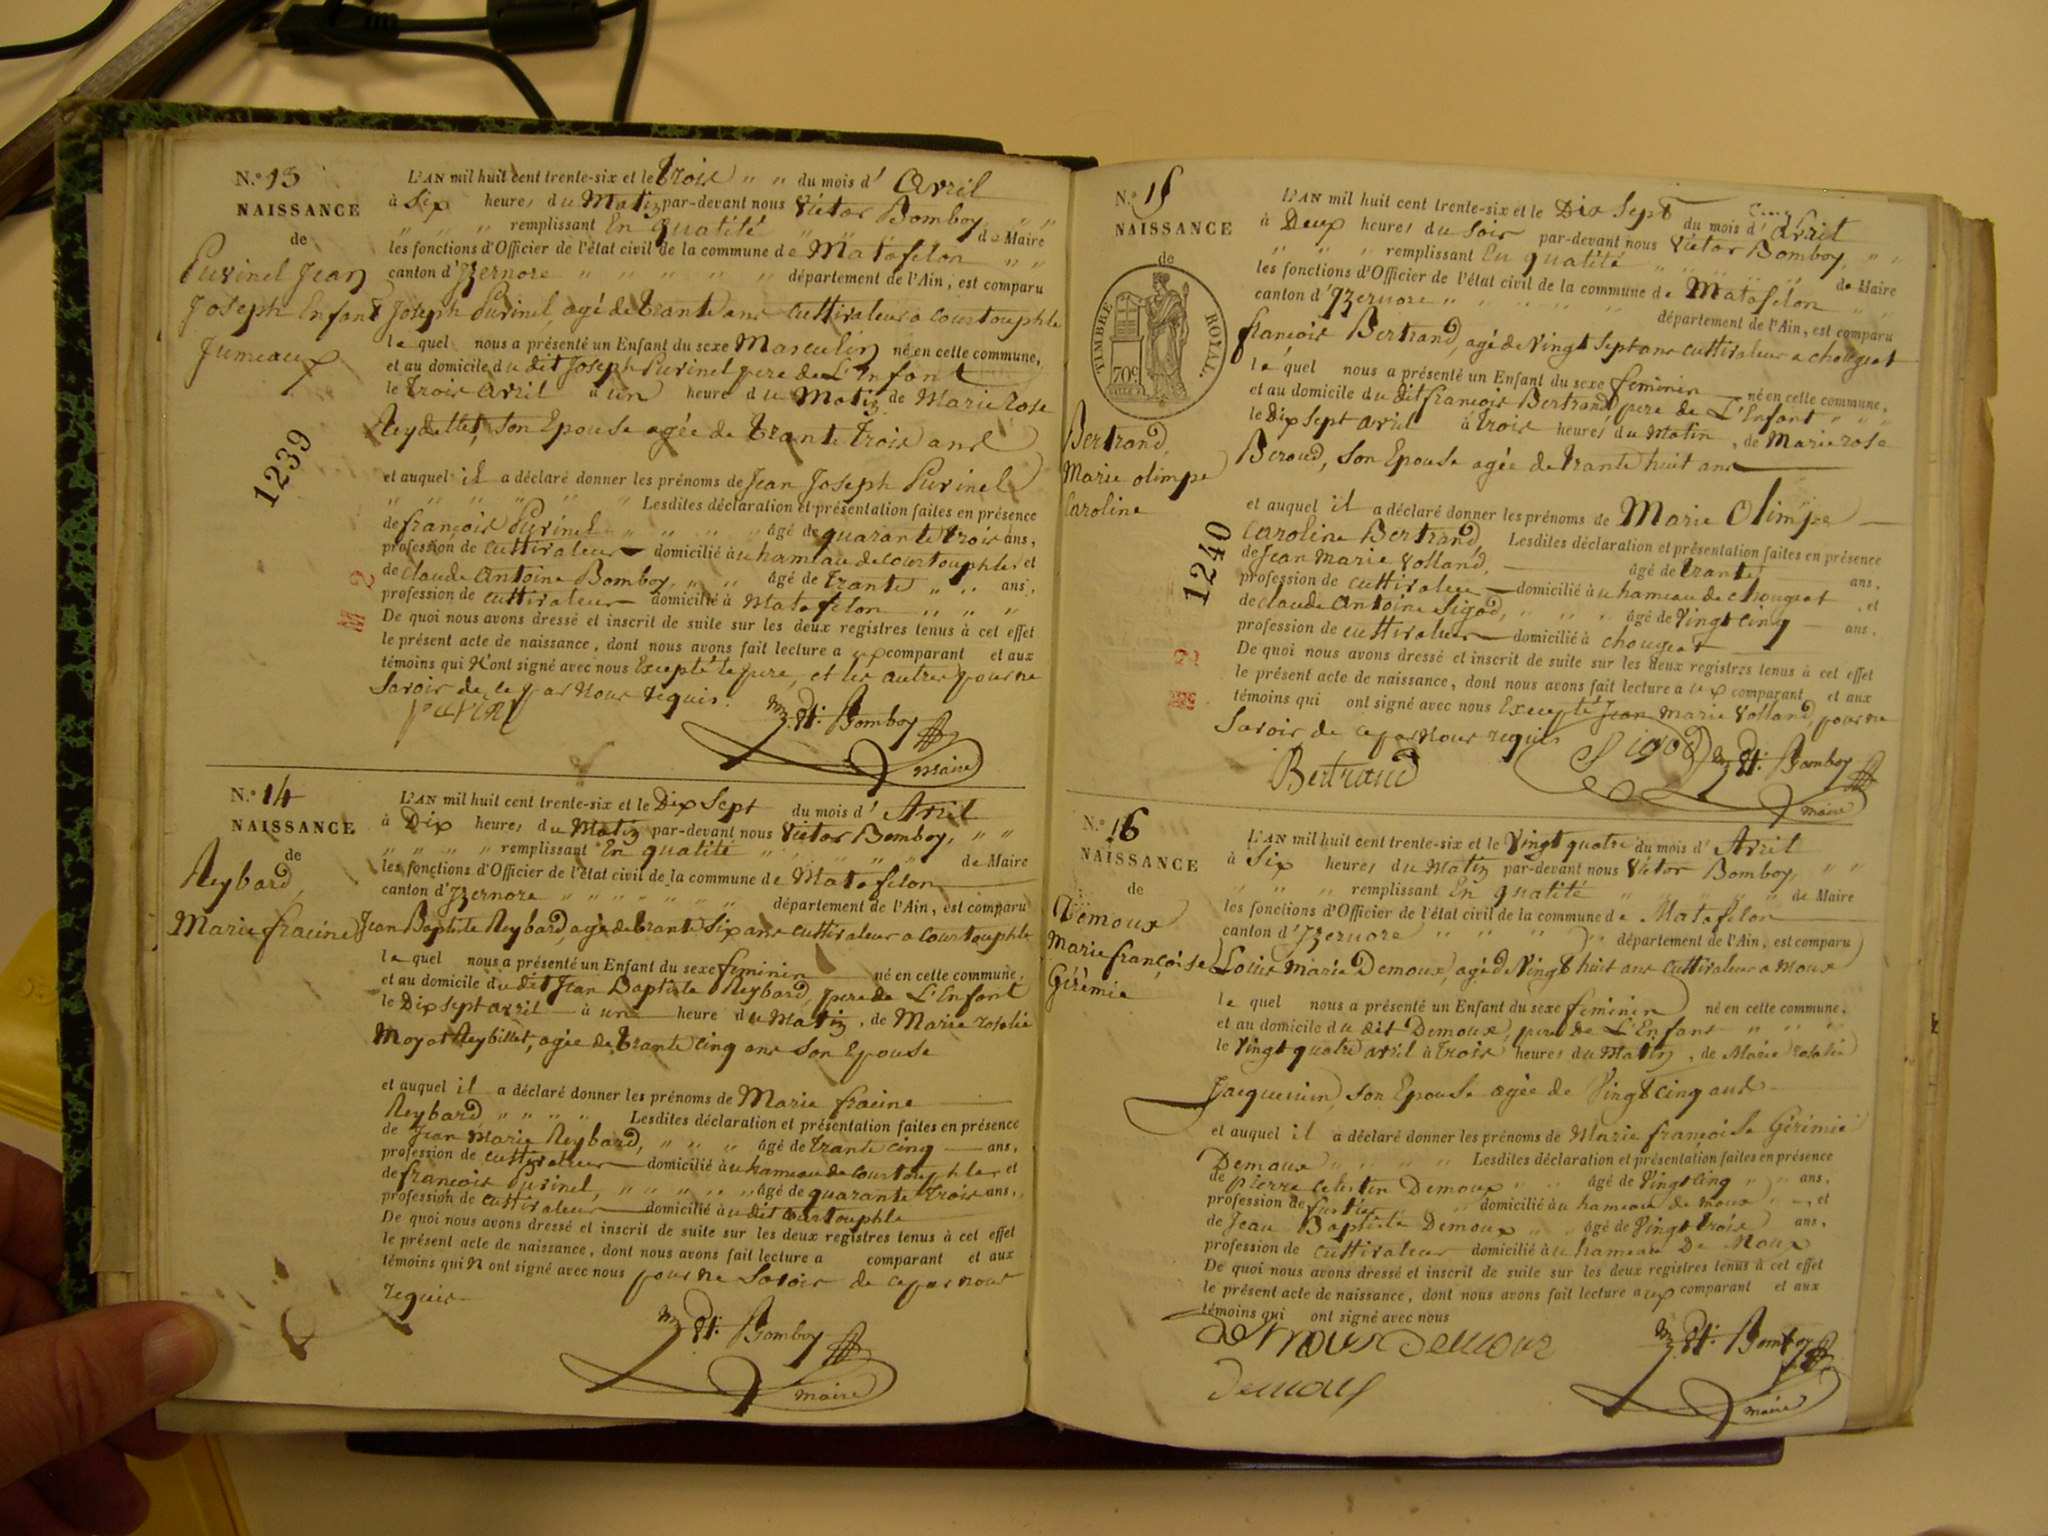 N.º 13
NAISSANCE
de
Puvinel Jean
Joseph Enfant
Jumeaux
1239
M 2
L'AN mil huit cent trente-six et le trois " " du mois d' Avril
à Six heures du Matin par-devant nous Victor Bomboy, " "
" " " remplissant En qualité " " " de Maire
les fonctions d'Officier de l'état civil de la commune de Matafelon " "
canton d'Izernore " " " " " département de l'Ain, est comparu
Joseph Puvinel, agé de trante ans cultivateur a Courtouphle
le quel nous a présenté un Enfant du sexe Masculin né en cette commune,
et au domicile du dit Joseph Puvinel pere de L'Enfant
le trois avril à un heure du Matin de Marie rose
Reydellet, Son Epouse agée de trante trois ans
et auquel il a déclaré donner les prénoms de Jean Joseph Puvinel
" " " " " " Lesdites déclaration et présentation faites en présence
de françois Puvinel " " " " âgé de quarante trois ans,
profession de cultivateur domicilié au hameau de courtouphle, et
de claude antoine Bomboy, " " âgé de trante " " ans,
profession de cultivateur domicilié à Matafelon " " "
De quoi nous avons dressé et inscrit de suite sur les deux registres tenus à cet effet
le présent acte de naissance, dont nous avons fait lecture a ux comparant et aux
témoins qui n'ont signé avec nous Excepté le pere, et les autres pour ne
Savoir de ce par nous requis.
puvinel
Bomboy
maire
N.º 14
NAISSANCE
de
Reybard,
Marie fracine
L'AN mil huit cent trente-six et le Dix Sept du mois d' Avril
à Dix heures du Matin par-devant nous Victor Bomboy, " "
" " " " remplissant En qualité " " " " de Maire
les fonctions d'Officier de l'état civil de la commune de Matafelon
canton d'Izernore " " " " " " département de l'Ain, est comparu
Jean Baptiste Reybard, agé de trante Six ans cultivateur a Courtouphle
le quel nous a présenté un Enfant du sexe feminin né en cette commune,
et au domicile du dit Jean Baptiste Reybard, pere de L'Enfant
le Dix sept avril à une heure du Matin, de Marie rosalie
Moyat Reybillet, agée de trante cinq ans Son Epouse
et auquel il a déclaré donner les prénoms de Marie fracine
Reybard, " " " " Lesdites déclaration et présentation faites en présence
de Jean Marie Reybard, " " " âgé de trante cinq ans,
profession de cultivateur domicilié au hameau de courtouphle, et
de françois Puvinel, " " " " " âgé de quarante trois ans,
profession de cultivateur domicilié au dit courtouphle
De quoi nous avons dressé et inscrit de suite sur les deux registres tenus à cet effet
le présent acte de naissance, dont nous avons fait lecture a comparant et aux
témoins qui n ont signé avec nous pour ne Savoir de ce par nous
requis
Bomboy
maire
N.º 15
NAISSANCE
de
TIMBRE ROYAL.
70c
Bertrand,
Marie olimpe
Caroline
1240
L'AN mil huit cent trente-six et le Dix Sept du mois d' Avril
à Deux heures du Soir par-devant nous Victor Bomboy, " "
" " " remplissant En qualité " " " de Maire
les fonctions d'Officier de l'état civil de la commune de Matafelon " "
canton d'Izernore " " " " " département de l'Ain, est comparu
françois Bertrand, agé de Vingt Sept ans cultivateur a chougeat
le quel nous a présenté un Enfant du sexe feminin né en cette commune,
et au domicile du dit françois Bertrand, pere de L'Enfant " " "
le Dix Sept avril à trois heures du Matin, de Marie rose
Beroud, Son Epouse agée de trante huit ans
et auquel il a déclaré donner les prénoms de Marie Olimpe
Caroline Bertrand, Lesdites déclaration et présentation faites en présence
de Jean Marie Volland, âgé de trante ans,
profession de cultivateur domicilié au hameau de chougeat, et
de claude antoine Sigod, " " " âgé de Vingt cinq ans,
profession de cultivateur domicilié à chougeat
De quoi nous avons dressé et inscrit de suite sur les deux registres tenus à cet effet
le présent acte de naissance, dont nous avons fait lecture a ux comparant et aux
témoins qui ont signé avec nous Excepté Jean Marie Volland, pour ne
Savoir de ce par nous requis
Sigod
Bomboy
Bertrand
maire
N.º 16
NAISSANCE
de
Demoux
Marie françoise
Gérémie
L'AN mil huit cent trente-six et le Vingt quatre du mois d' Avril
à Six heures du Matin par-devant nous Victor Bomboy, " "
" " " remplissant En qualité " " " " de Maire
les fonctions d'Officier de l'état civil de la commune de Matafelon
canton d'Izernore " " " " département de l'Ain, est comparu
Louis Marie Demoux, agé de Vingt huit ans cultivateur a Moux
le quel nous a présenté un Enfant du sexe feminin né en cette commune,
et au domicile du dit Demoux, pere de L'Enfant " " "
le Vingt quatre avril à trois heures du Matin, de Marie rosalie
Jacquemin, Son Epouse agée de Vingt cinq ans
et auquel il a déclaré donner les prénoms de Marie françoise Gérémie
Demoux " " " " " Lesdites déclaration et présentation faites en présence
de pierre celestin Demoux " " âgé de Vingt cinq " " ans,
profession de domicilié au hameau de moux " , et
de Jean Baptiste Demoux " " âgé de Vingt trois ans,
profession de cultivateur domicilié au hameau De Moux
De quoi nous avons dressé et inscrit de suite sur les deux registres tenus à cet effet
le présent acte de naissance, dont nous avons fait lecture a ux comparant et aux
témoins qui ont signé avec nous
demoux Demoux
Bomboy
demoux
maire